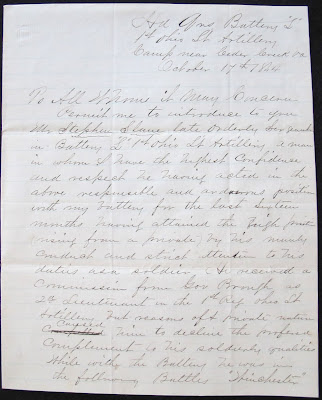 Hd Qrs Battery "L"
1st Ohio Lt Artillery
Camp near Ceder Creek Va
October 17th 1864
To All Whome it May Concern
Permit me to introduce to you
Mr Stephen late Orderly Sergeant
in Battery "L" 1st Ohio Lt Artillery, a man
in whom I have the highest Confidence
and respect he having acted in the
above responsible and arduous position
with my Battery for the last Sixteen
months having attained the high point
rising from a private by his manly
conduct and strict attention to his
duties as a soldier. He received a
Commission from Gov Brough as
2d Lieutenant in the 1st Reg Ohio Lt
Artillery but reasons of a private nature
Caused him to decline the profered
Complement to his soldierly qualities
While with the Battery he was in
the following Battles "Winchester"